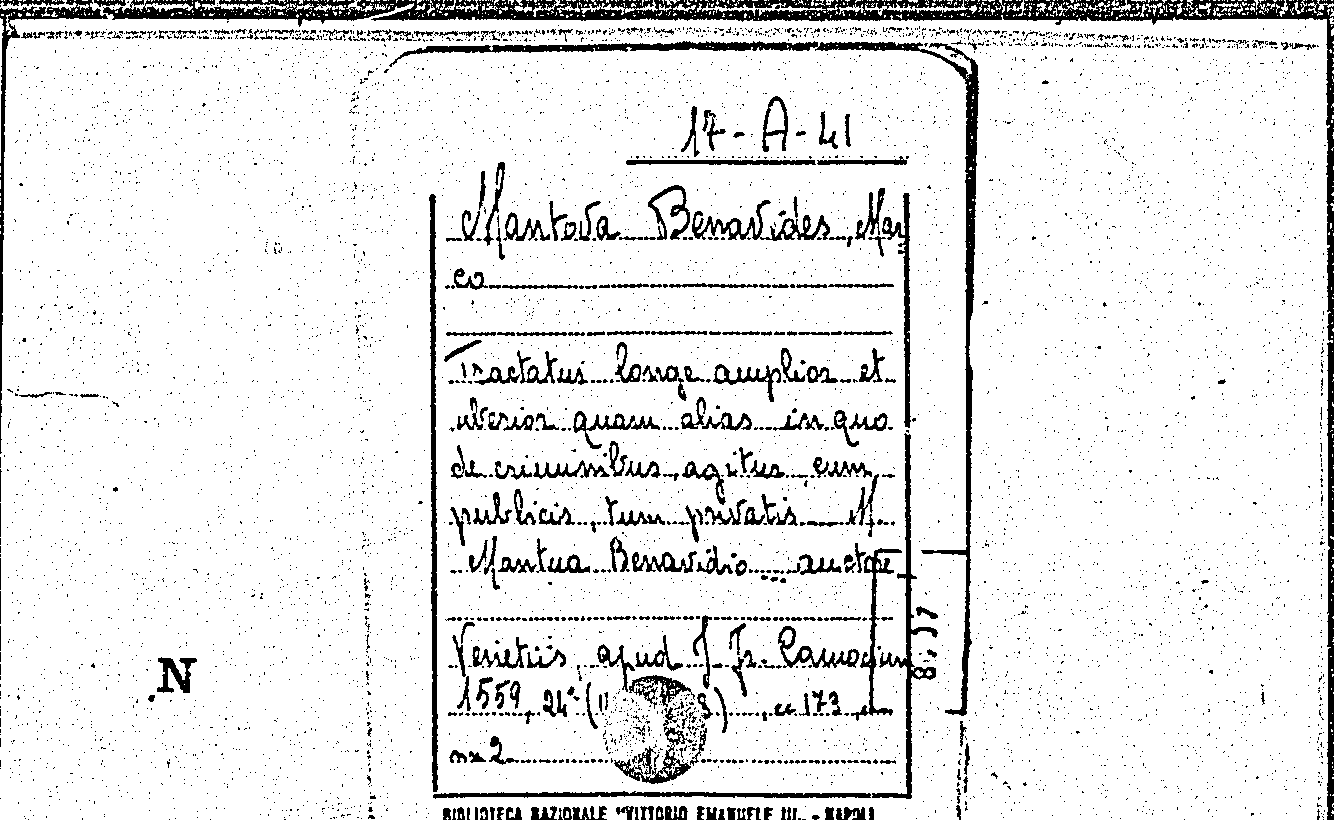 17-A-41
Mantova Benavides, Mar
co
Tractatus longe amplior et
uberior quam alias in quo
de criminibus agitur cum
publicis, tum privatis M.
Mantua Benavidio ... auctore
Venetiis, apud J. Fr. Camocium
1559, 24° ( 8) , cc 173, 
nn 2.
8.17
N
BIBLIOTECA NAZIONALE "VITTORIO EMANUELE III" - NAPOLI